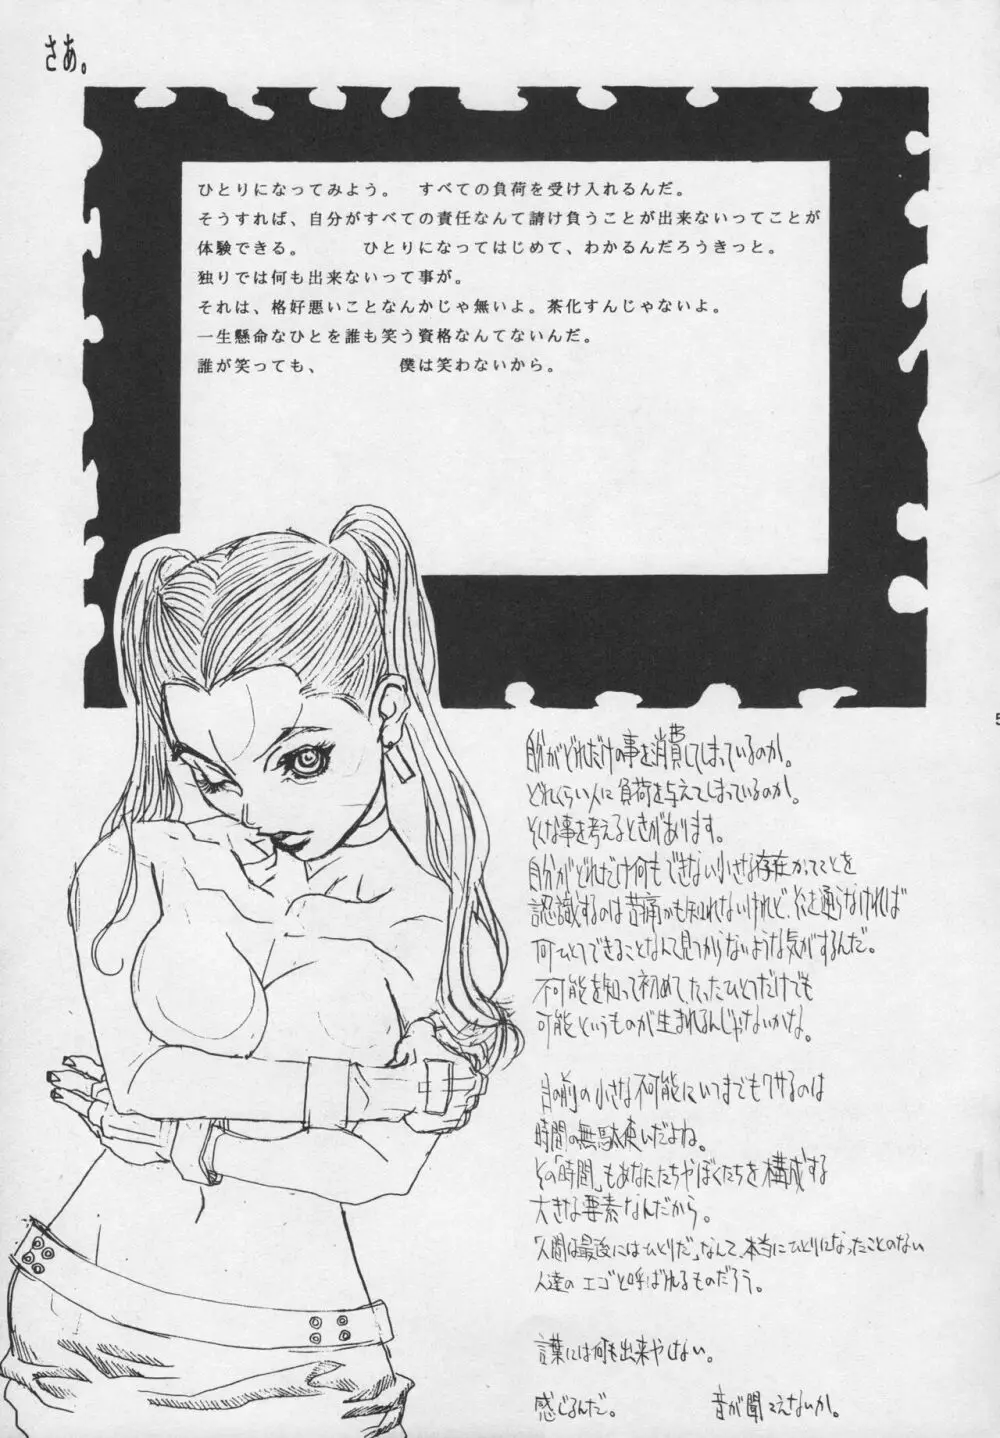 さあ。
ひとりになってみよう。　すべての負荷を受け入れるんだ。
そうすれば、自分がすべての責任なんて請け負うことが出来ないってことが
体験できる。　　　ひとりになってはじめて、わかるんだろうきっと。
独りでは何も出来ないって事が。
それは、格好悪いことなんかじゃ無いよ。茶化すんじゃないよ。
一生懸命なひとを誰も笑う資格なんてないんだ。
誰が笑っても、　　　　僕は笑わないから。
5
自分がどれだけの事を消費してしまっているのか。
どれくらい人に負荷を与えてしまっているのか。
そんな事を考えるときがあります。
自分がどれだけ何もできない小さな存在かってことを
認識するのは苦痛かも知れないけれど、それを通らなければ
何ひとつできることなんて見つからないような気がするんだ。
不可能を知って初めて、たったひとつだけでも
可能というものが生まれるんじゃないかな。
目の前の小さな不可能にいつまでもクサるのは
時間の無駄使いだよね。
その「時間」もあなたたちやぼくたちを構成する
大きな要素なんだから。
「人間は最後にはひとりだ」なんて、本当にひとりになったことのない
人達のエゴと呼ばれるものだろう。
言葉には何も出来やしない。
感じるんだ。　　　　音が聞こえないか。